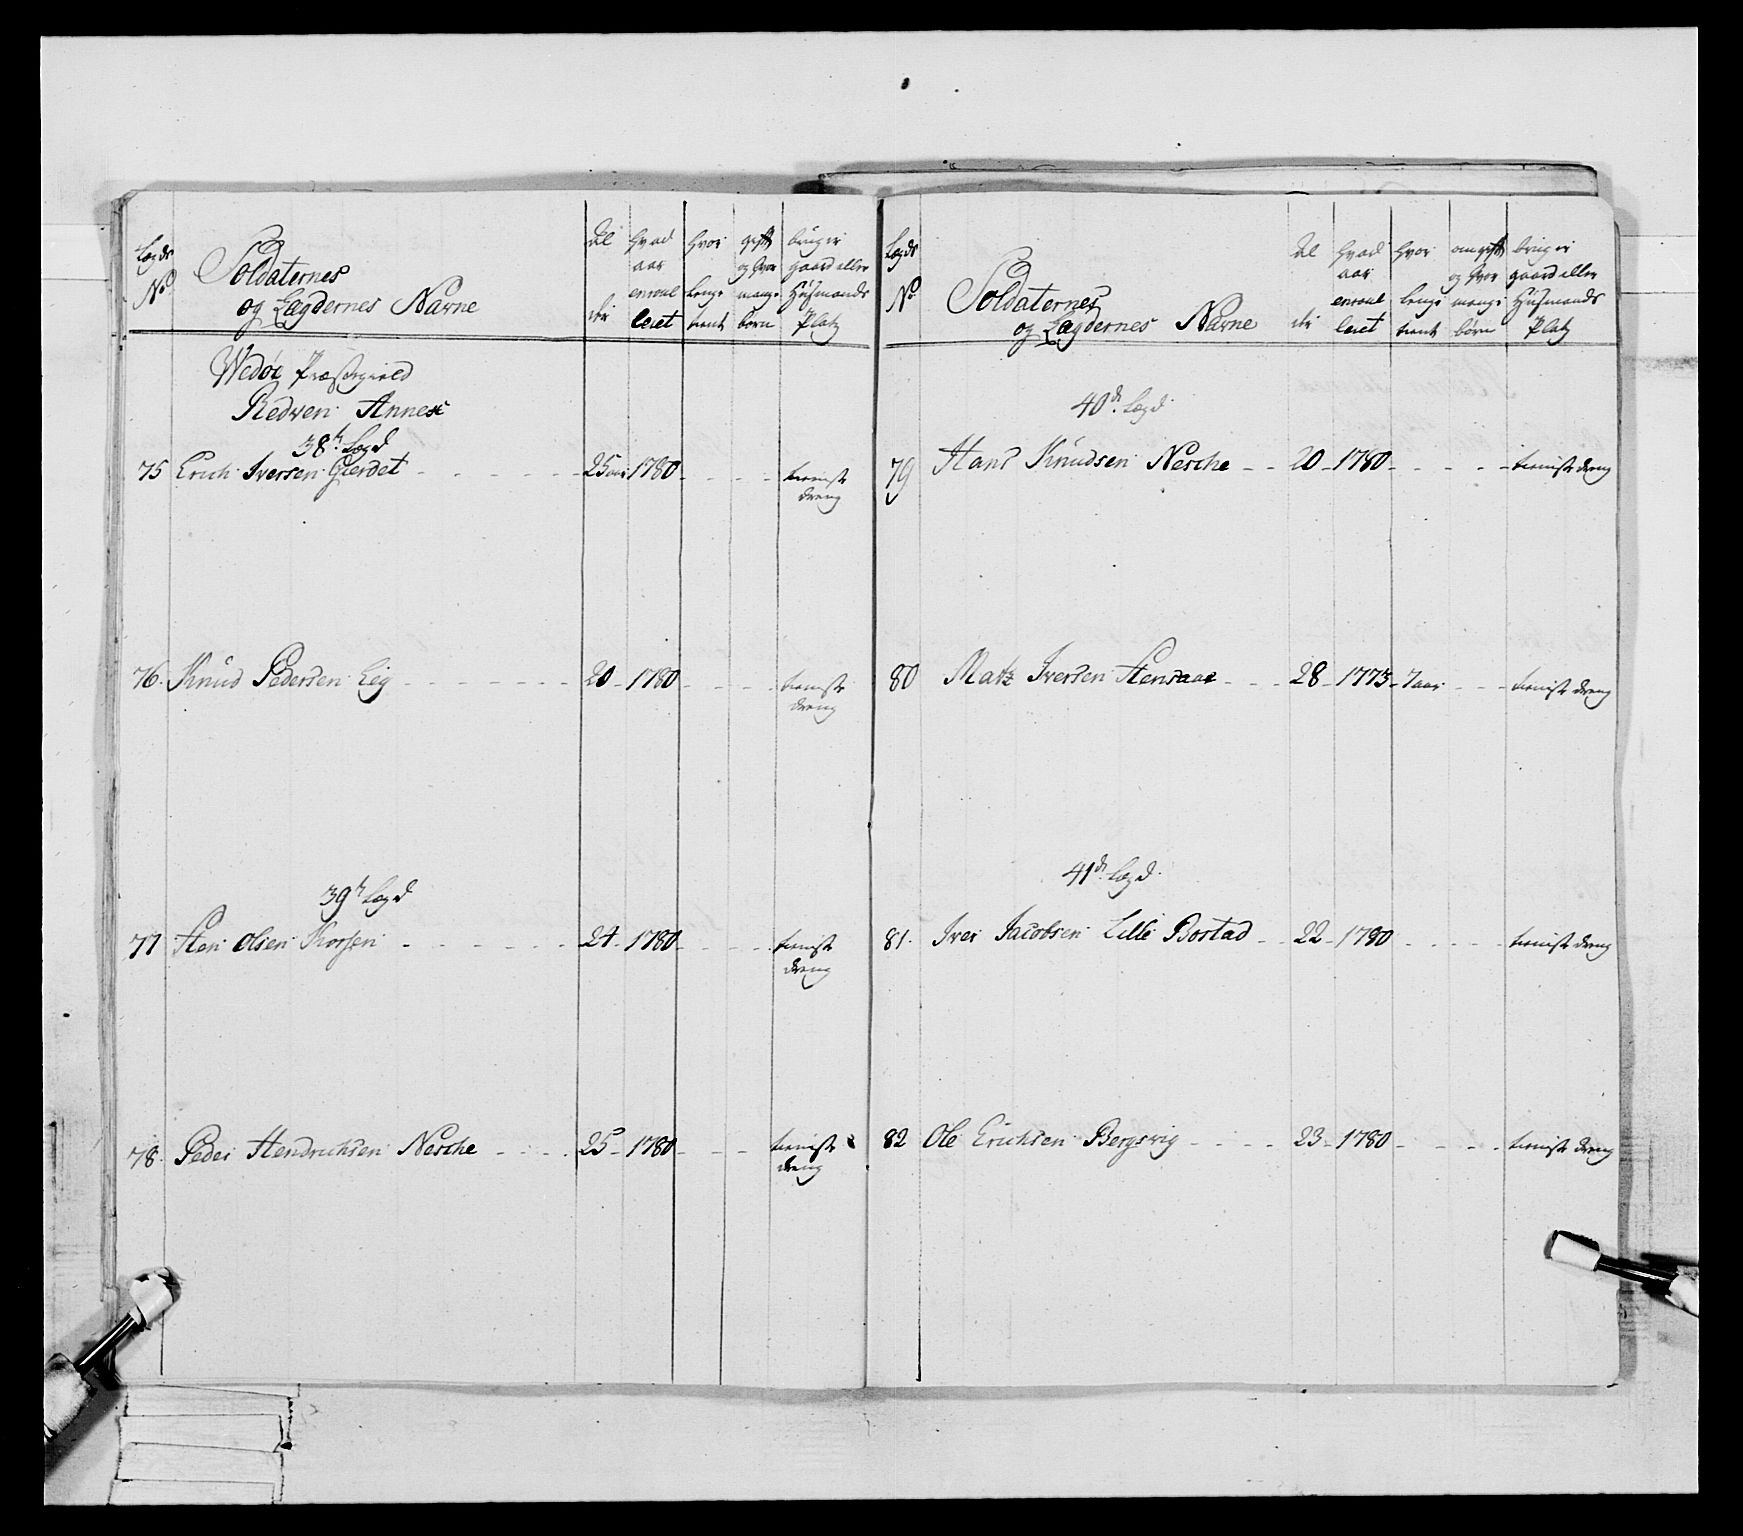 Lægds
No
Soldaternes
og Lægdernes Navne
Al
der
hvad
aar
enroul
leret
hvor
lenge
tient
gift
og hvor
mange
børn
bruger
gaard eller
Huusmands
Platz
Wedøe Præstegield
Redven Annex
38te Lægd
75 Erich Iversen Gierdet 25 aar 1780 tieniste
dreng
76. Knud Pedersen Eeg 20 1780 tieniste
dreng
39te Lægd
77 Sten Olsen Korsen 24 1780 tieniste
dreng
78. Peder Hendrichsen Nesche 25 1780 tieniste
dreng
Lægds
No
Soldaternes
og Lægdernes Navne
Al
der
hvad
aar
enroul
leret
hvor
lenge
tient
om gift
og hvor
mange
børn
bruger
gaard eller
Huusmands
Platz
40de Lægd
79 Hans Knudsen Nesche 20 1780 tieniste dreng
80 Matz Iversen Stensaae 28 1773 7 aar tieniste dreng
41de Lægd
81. Iver Jacobsen Lille Bostad 22 1780 tieniste dreng
82 Ole Erichsen Bergsvig 23 1780 tieniste dreng